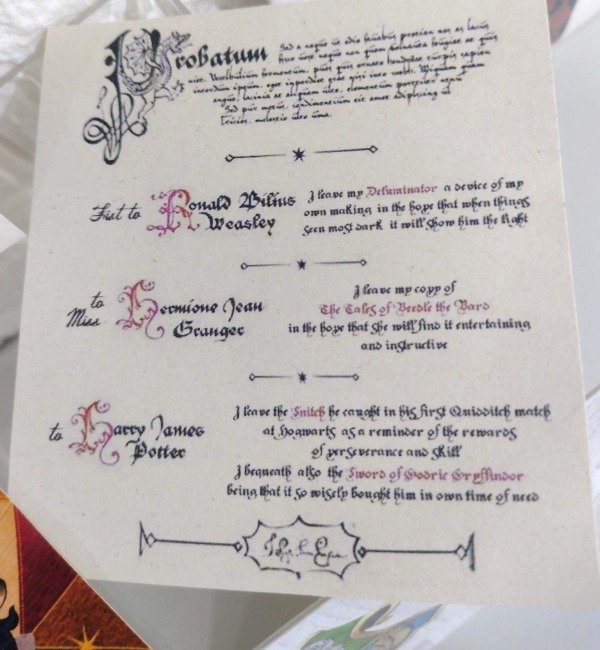 Probatum
Sed a neque ut odio faucibus pretian nec et lacus
quis
nisi. Vestibulum fermentum, puis quis ornare hendrerit turpis sapien
interdum ipsum, eget imperdiet erat nisi
augue, lacinia at aliquam
Sed puc metus, condimentum sit amet adipiscing ut
First to
Ronald Bilius
Weasley
I leave my Deluminator a device of my
own making in the hope that when things
seen most dark it will show him the light
to
Miss
Hermione Jean
Granger
I leave my copy of
The Tales of Beedle the Bard
in the hope that she will find it entertaining
and instructive
to
Harry James
Potter
I leave the Snitch he caught in his first Quidditch match
at Hogwarts as a reminder of the rewards
of perseverance and skill
I bequeath also the Sword of Godric Gryffindor
being that it so wisely bought him in own time of need